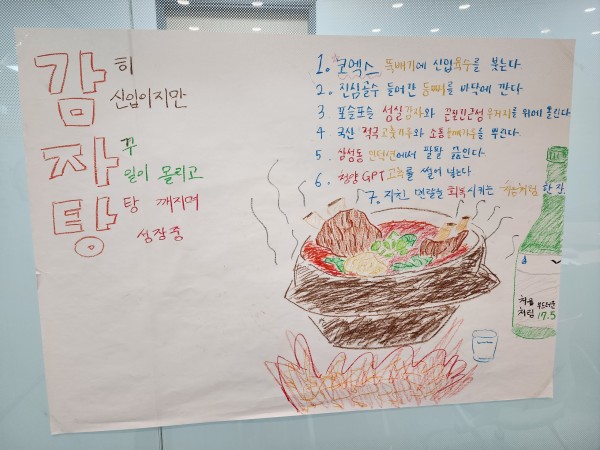 감히
신입이지만
자꾸
일이 몰리고
탕탕 깨지며
성장중
1. 코엑스 뚝배기에 신입육수를 붓는다.
2. 진심골수 들어간 등뼈를 바닥에 깐다.
3 포슬포슬 성실감자와 끈끈한근성 우거지를 위에 올린다.
4 국산 적극고춧가루와 소통들깨가루를 뿌린다.
5. 삼성동 인덕션에서 팔팔 끓인다.
6. 청양GPT고추를 썰어 넣는다
7. 지친 멘탈을 회복시키는 처음처럼 한 잔
처음처럼
부드러운
17.5